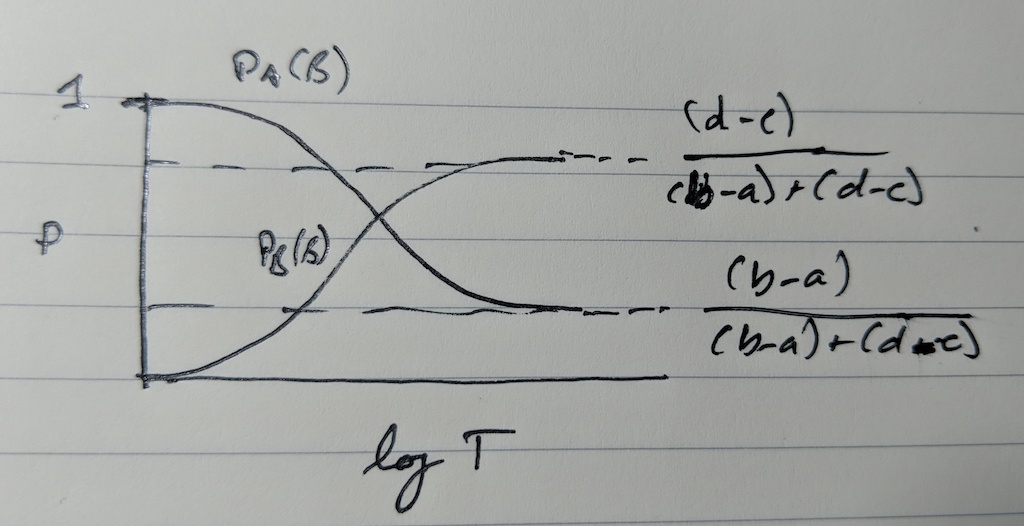 P_A(B)
1
(d-c)
(b-a)+(d-c)
P
P_B(B)
(b-a)
(b-a)+(d-c)
log T